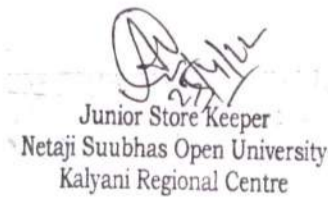 29/4/22
Junior Store Keeper
Netaji Suubhas Open University
Kalyani Regional Centre